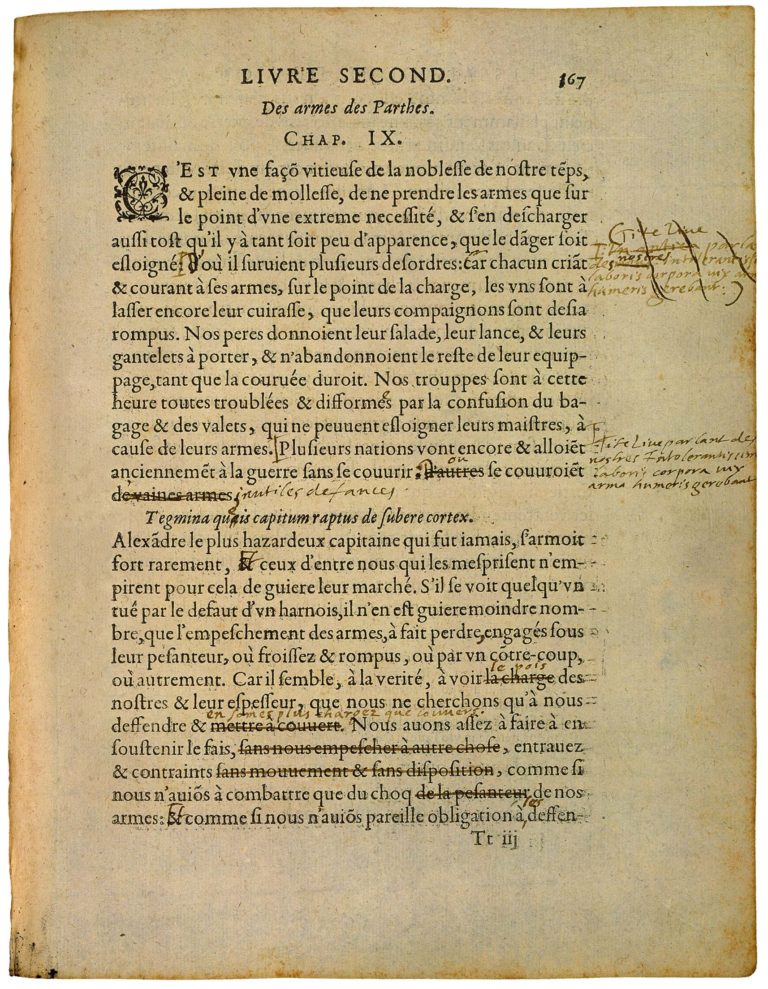 LIVRE SECOND. 167
Des armes des Parthes.
CHAP. IX.
C'EST vne façõ vitieuse de la noblesse de nostre tẽps,
& pleine de mollesse, de ne prendre les armes que sur
le point d'vne extreme necessité, & s'en descharger
aussi tost qu'il y à tant soit peu d'apparence, que le dãger soit
esloigné: D'où il suruient plusieurs desordres: Car chacun criãt
& courant à ses armes, sur le point de la charge, les vns sont à
lasser encore leur cuirasse, que leurs compaignons sont desia
rompus. Nos peres donnoient leur salade, leur lance, & leurs
gantelets à porter, & n'abandonnoient le reste de leur equip-
page, tant que la couruée duroit. Nos trouppes sont à cette
heure toutes troublées & difformes par la confusion du ba-
gage & des valets, qui ne peuuent esloigner leurs maistres, à
cause de leurs armes. Plusieurs nations vont encore & alloiẽt
anciennemẽt à la guerre sans se couurir: ou d'autres se couuroiẽt
de vaines armes, inutiles defances
Tegmina queis capitum raptus de subere cortex.
Alexãdre le plus hazardeux capitaine qui fut iamais, s'armoit
fort rarement, Et ceux d'entre nous qui les mesprisent n'em-
pirent pour cela de guiere leur marché. S'il se voit quelqu'vn
tué par le defaut d'vn harnois, il n'en est guiere moindre nom-
bre, que l'empeschement des armes, à fait perdre, engagés sous
leur pesanteur, où froissez & rompus, où par vn cõtre-coup,
le pois
où autrement. Car il semble, à la verité, à voir la charge des
nostres & leur espesseur, que nous ne cherchons qu'à nous
en somes plus chargez que couuers.
deffendre & mettre à couuert. Nous auons assez à faire à en
soustenir le fais, sans nous empescher à autre chose, entrauez
& contraints sans mouuement & sans disposition, comme si
nous n'auiõs à combattre que du choq de la pesanteur de nos
armes: Et comme si nous n'auiõs pareille obligation à les deffen-
Tt iij
Tite Liue
parla
nostres Intolerantissi
laboris corpora vix a
humeris gerebant.
Tite Liue parlant des
nostres Intolerantissima
laboris corpora vix
arma humeris gerebant